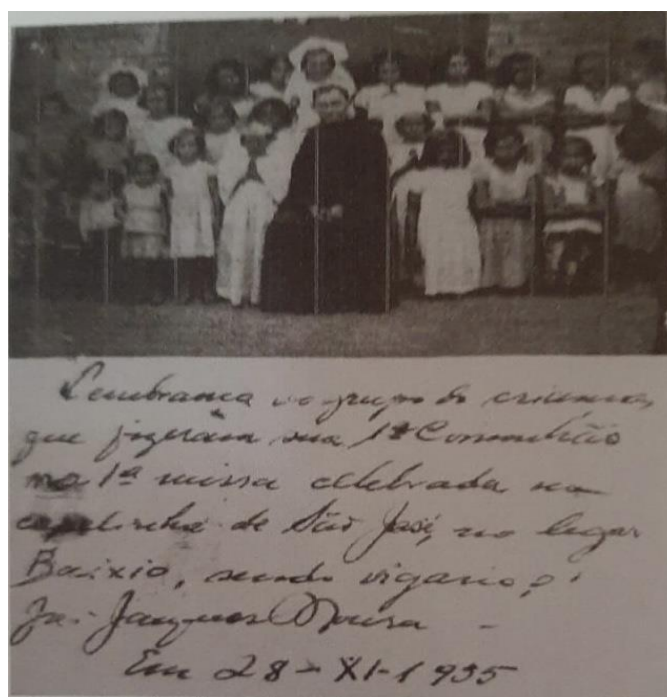 Lembrança do grupo de crianças,
que fizeram sua 1ª Communhão
na 1ª missa celebrada na
capelinha de São José, no lugar
Baixio, sendo vigario, o
Jacques Moura -
Em 28-XI-1935